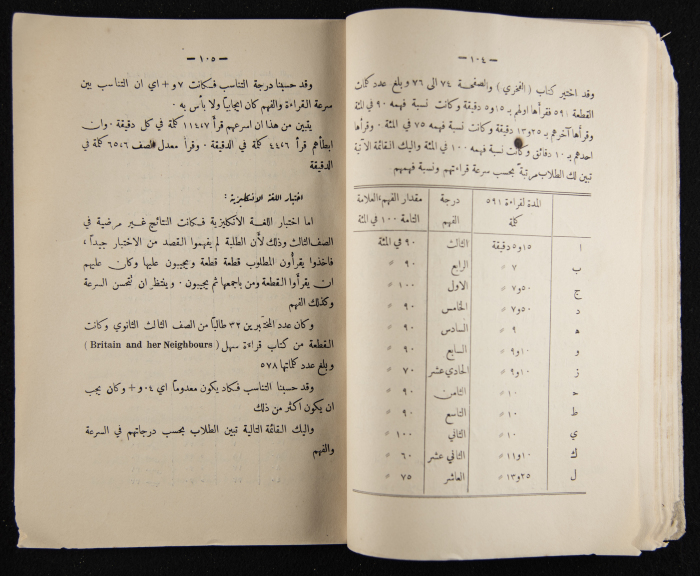 — ١٠٤ —
وقد اختبر كتاب (الفخري) والصفحة ٧٤ الى ٧٦ وبلغ عدد كلمات
القطعة ٥٩١ فقرأها اولهم بـ ١٥و٥ دقيقة وكانت نسبة فهمه ٩٠ في المئة
وقرأها آخرهم بـ ٢٥و١٣ دقيقة وكانت نسبة فهمه ٧٥ في المئة . وقرأها
احدهم بـ ١٠ دقائق وكانت نسبة فهمه ١٠٠ في المئة واليك القائمة الآتية
تبين لك الطلاب مرتبة بحسب سرعة قراءتهم ونسبة فهمهم
المدة لقراءة ٥٩١ كلمة درجة الفهم مقدار الفهم، العلامة التامة ١٠٠ في المئة
ا ١٥و٥ دقيقة الثالث ٩٠ في المئة
ب ٧ » الرابع ٩٠ »
ج ٥٠و٧ » الاول ١٠٠ »
د ٥٠و٧ » الخامس ٩٠ »
ه ٩ » السادس ٩٠ »
و ١٠و٩ » السابع ٩٠ »
ز ١٠و٩ » الحادي عشر ٧٠ »
ح ١٠ » الثامن ٩٠ »
ط ١٠ » التاسع ٩٠ »
ي ١٠ » الثاني ١٠٠ »
ك ١٠و١١ » الثاني عشر ٦٠ »
ل ٢٥و١٣ » العاشر ٧٥ »
— ١٠٥ —
وقد حسبنا درجة التناسب فكانت ٧و + اي ان التناسب بين
سرعة القراءة والفهم كان ايجابيا ولا بأس به .
يتبين من هذا ان اسرعهم قرأ ١١٤،٧ كلمة في كل دقيقة . وان
ابطأهم قرأ ٤٤،٦ كلمة في الدقيقة . وقرأ معدل الصف ٦٥،٦ كلمة في
الدقيقة
اختبار اللغة الانكليزية :
اما اختبار اللغة الانكليزية فكانت النتائج غير مرضية في
الصف الثالث وذلك لأن الطلبة لم يفهموا القصد من الاختبار جيداً ،
فاخذوا يقرأون المطلوب قطعة قطعة ويجيبون عليها وكان عليهم
ان يقرأوا القطعة ومن باجمعها ثم يجيبون . وينتظر ان تتحسن السرعة
وكذلك الفهم
وكان عدد المختبرين ٣٢ طالباً من الصف الثالث الثانوي وكانت
القطعة من كتاب قراءة سهل (Britain and her Neighbours)
وبلغ عدد كلماتها ٥٧٨
وقد حسبنا التناسب فكاد يكون معدوماً اي ٠٤و + وكان يجب
ان يكون اكثر من ذلك
واليك القائمة التالية تبين الطلاب بحسب درجاتهم في السرعة
والفهم